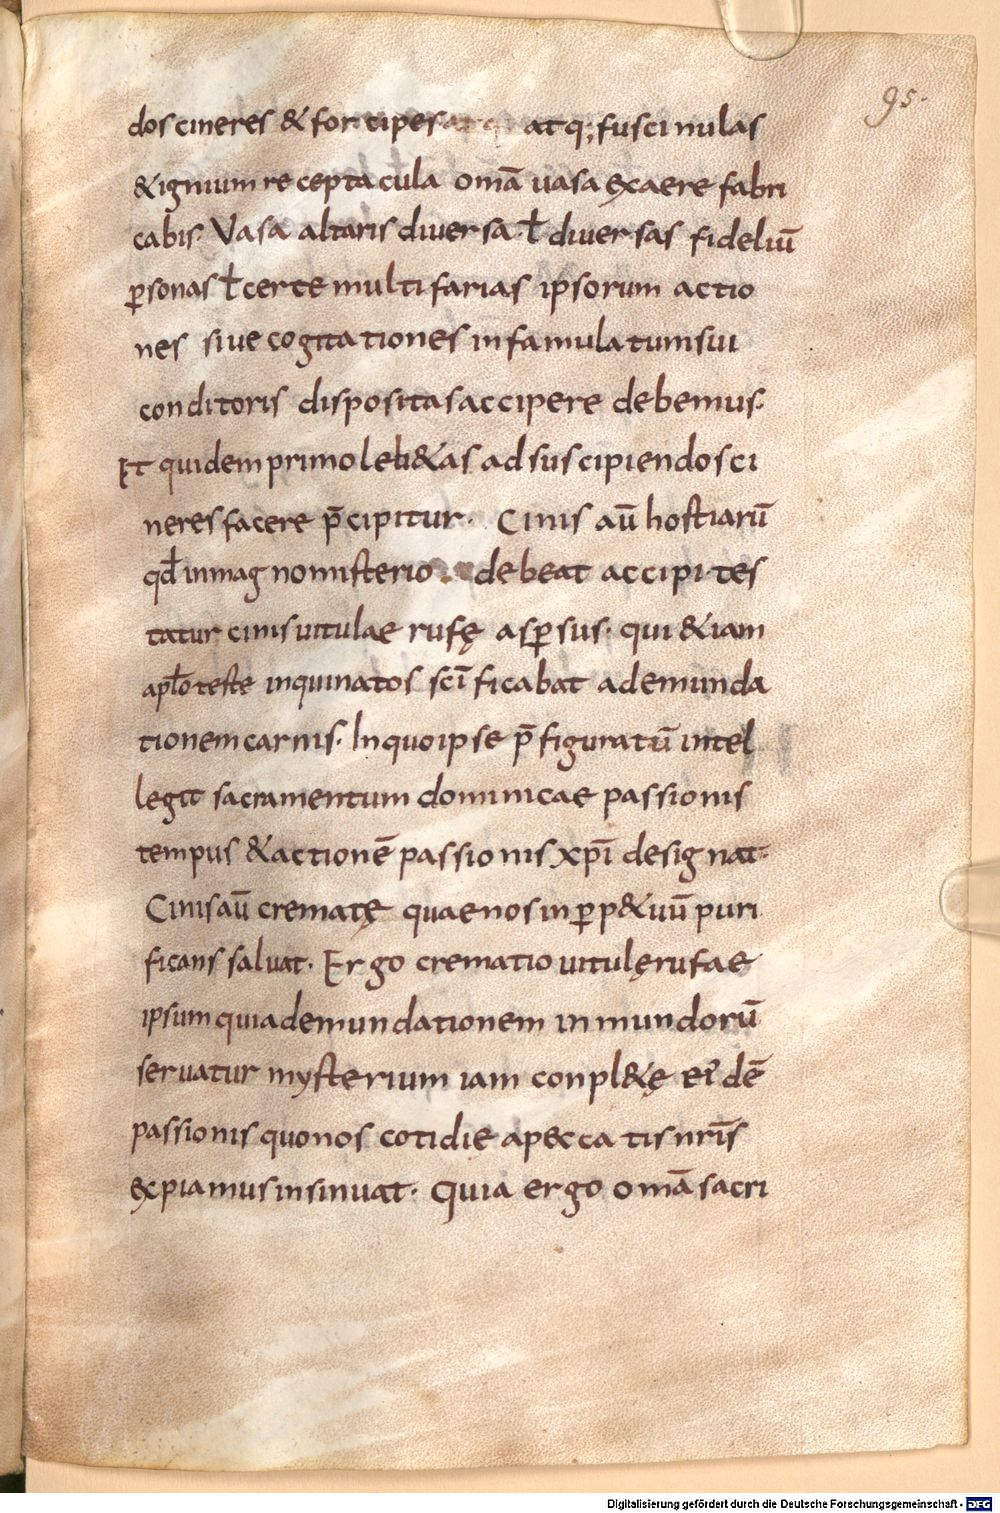 95.
dos cineres & forcipes atq; fuscinulas
& ignium receptacula omā vasa ex aere fabri
cabis. Vasa altaris diuersa. ł diuersas fideliū
ꝑsonas ł certe multifarias ipsorum actio
nes siue cogitationes in famulatum sui
conditoris dispositas accipere debemus.
Et quidem primo leb&as ad suscipiendos ci
neres facere p̄cipitur. Cinis aū hostiarū
qđ in magno misterio debeat accipi tes
tatur cinis uitulae rufę asꝑsus. qui & iam
apło teste inquinatos sc̄ificabat ad emunda
tionem carnis. In quo ipse p̄figuratū intel
legit sacramentum dominicae passionis
tempus & actionē passionis xp̄i designat.
Cinis aū crematę quae nos in ꝑp&uū puri
ficans saluat. Ergo crematio uitulę rufae
ipsum quia demundationem inmundorū
seruatur mysterium iam conpl&ę eiꝰdē
passionis quo nos cotidie a peccatis nr̄is
expiamus insinuat. Quia ergo omā sacri
Digitalisierung gefördert durch die Deutsche Forschungsgemeinschaft - DFG